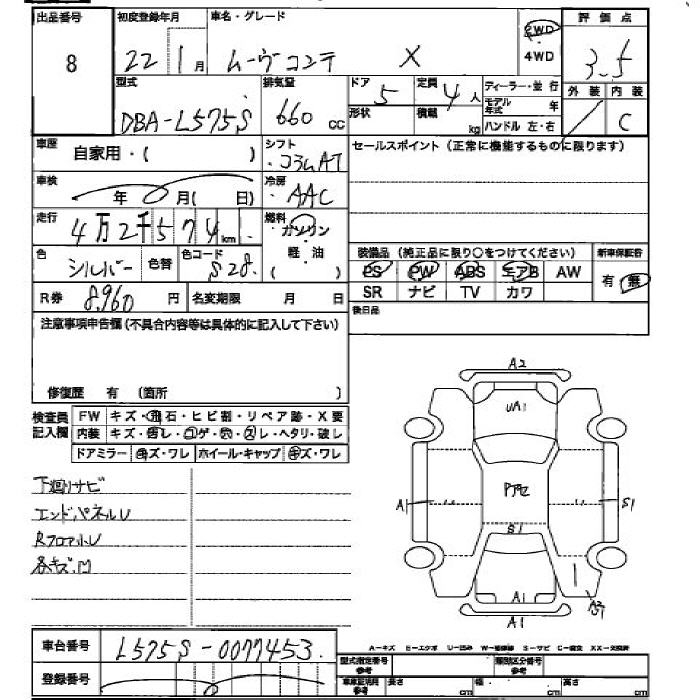 出品番号 初度登録年月 車名・グレード 評価点
8 22 1月 ムーヴコンテ X 2WD ・4WD 3.5
外装 内装
C
型式 排気量 ドア 定員 ディーラー・並行
DBA-L575S 660 cc 5 4人 モデル年式 年
形状 積載 kg ハンドル 左・右
車歴 自家用・( ) シフト ・コラムAT セールスポイント(正常に機能するものに限ります)
車検 年 月( ) 冷房 ・AAC
走行 4万2千574km 燃料 ・ガソリン ( 軽・油 )
色 シルバー 色替 色コード S28 装備品(純正品に限り○をつけてください) 新車保証書
PS PW ABS エアB AW 有・無
R券 8,960円 名変期限 月 日 SR ナビ TV カワ
注意事項申告欄(不具合内容等は具体的に記入して下さい) 後日品
修復歴 有 (箇所 )
検査員記入欄 FW キズ・飛石・ヒビ割・リペア跡・X要
内装 キズ・汚レ・コゲ・穴・スレ・ヘタリ・破レ
ドアミラー キズ・ワレ ホイール・キャップ キズ・ワレ
下廻りサビ
エンドパネルU
RフロアマットU
各キズ.凹
A2
UA1
A1
S1
S1
A1
A1
車台番号 L575S-0077453
登録番号
A-キズ E-エクボ U-凹ミ W-補修跡 S-サビ C-腐食 XX-交換済
型式指定番号 参考 類別区分番号 参考
車庫証明用 参考 長さ cm 幅 cm 高さ cm